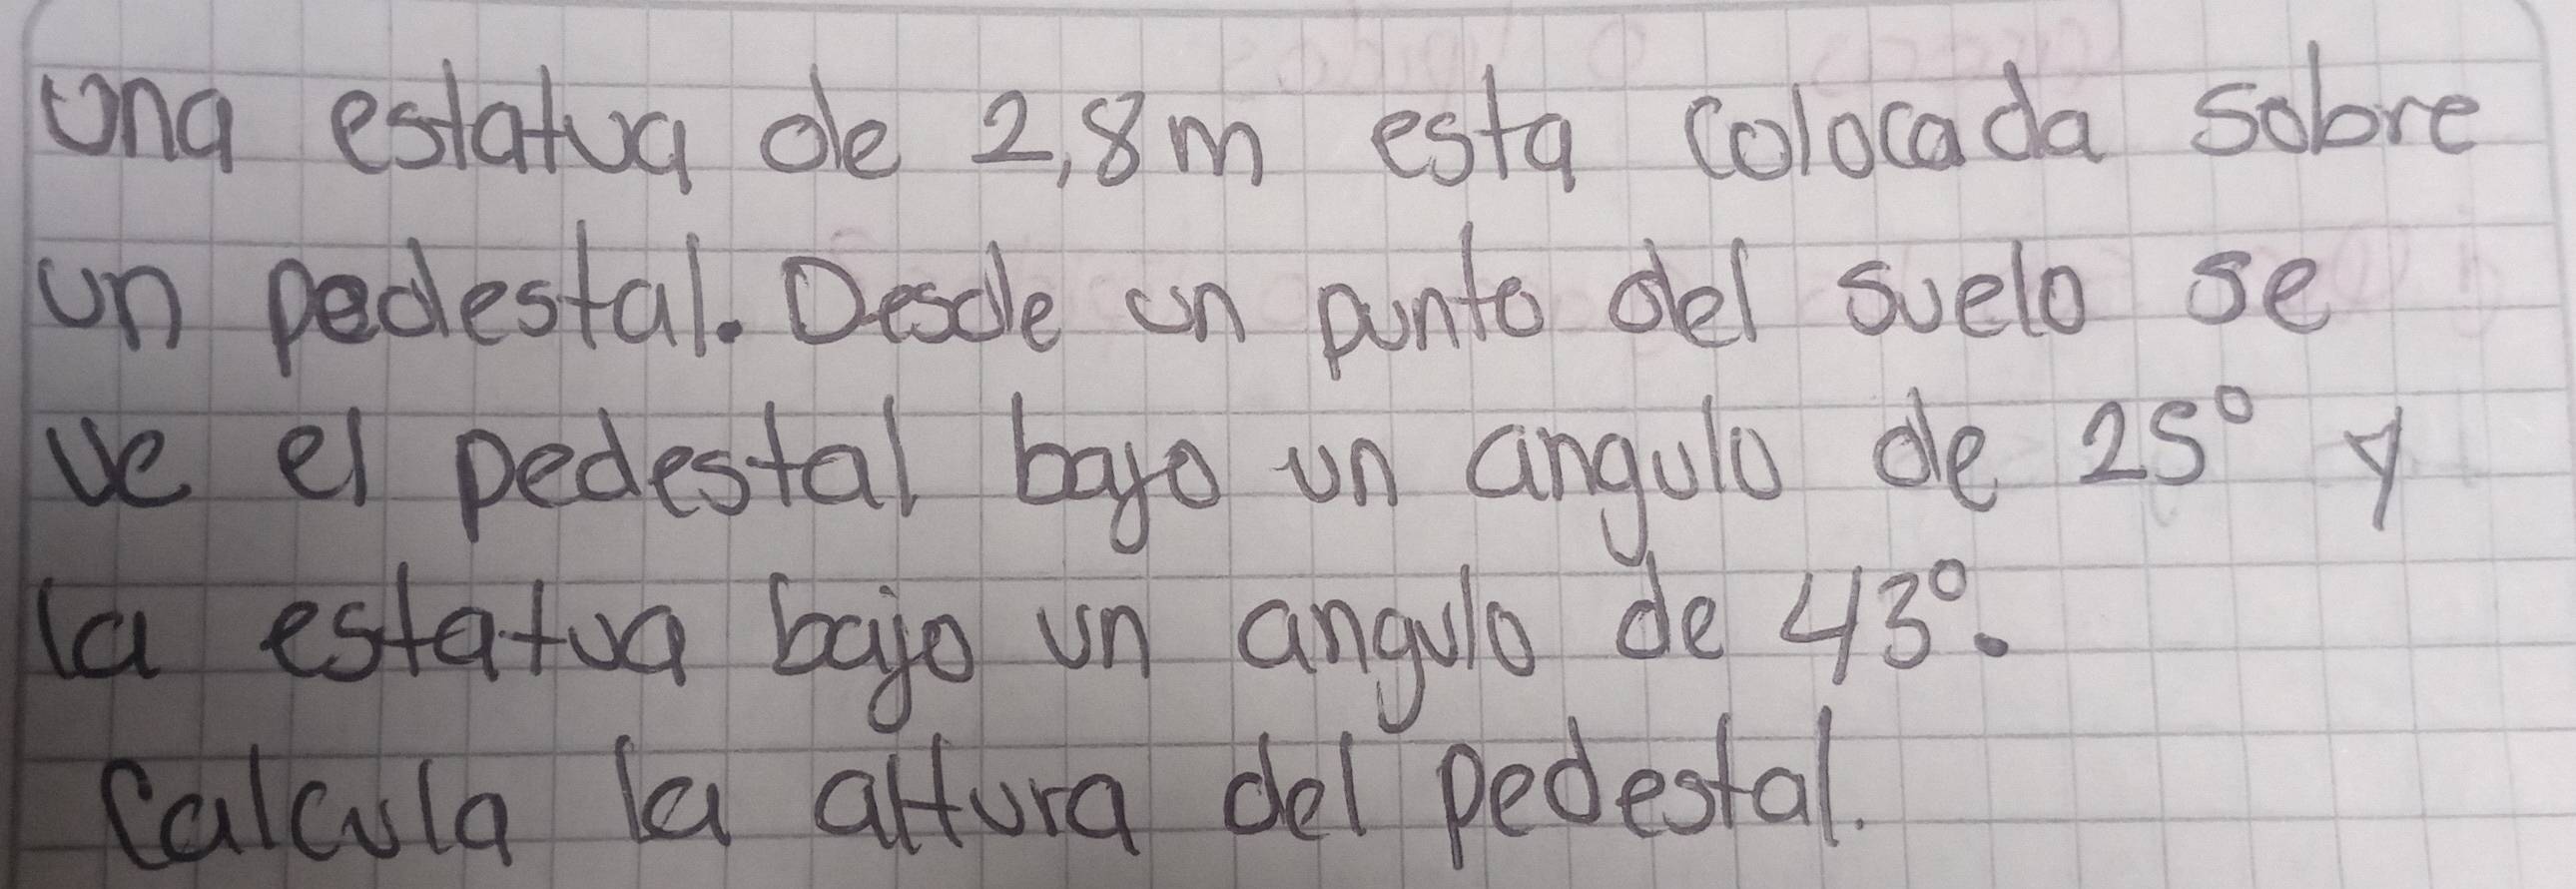 Una estatua de 2,8m esta colocada sobre
un pedestal. Desde un punto del suelo se
ve el pedestal bajo un angulo de 25° y
la estatua bajo un angulo de 43°.
Calcula la altura del pedestal.